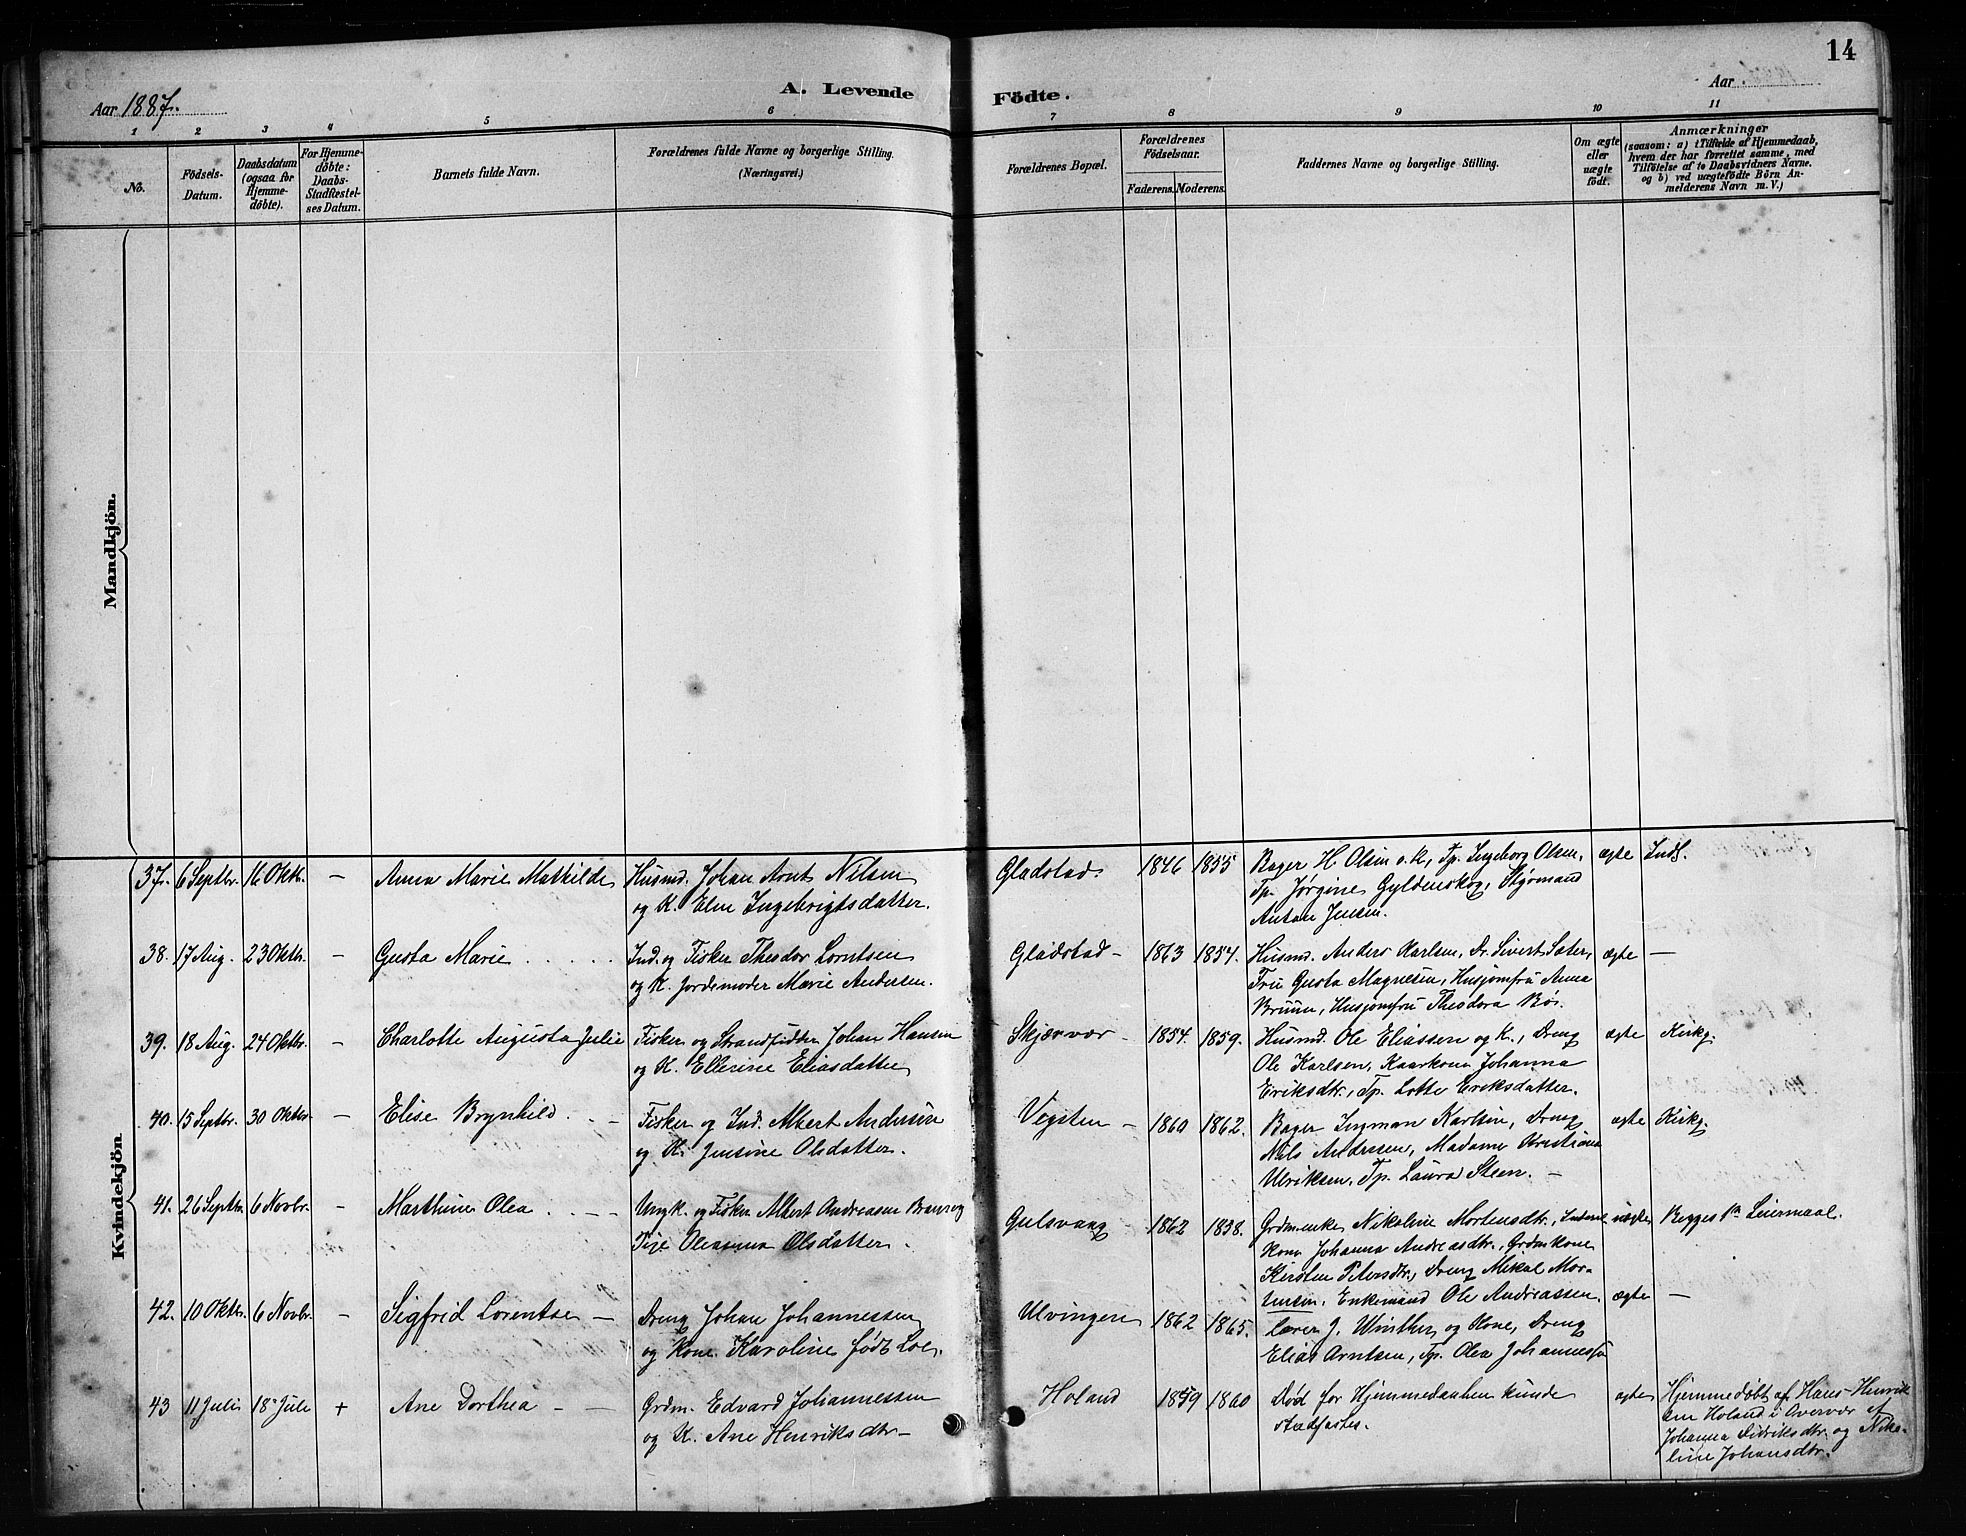 14
Aar 1887.
A. Levende Födte.
Aar
1 2 3 4 5 6 7 8 9 10 11
No.
Födsels-
Datum.
Daabsdatum
(ogsaa for
Hjemme-
döbte).
For Hjemme-
döbte:
Daabs-
Stadfæstel-
ses Datum.
Barnets fulde Navn.
Forældrenes fulde Navne og borgerlige Stilling.
(Næringsvei.)
Forældrenes Bopæl.
Forældrenes
Födselsaar.
Faderens. Moderens.
Faddernes Navne og borgerlige Stilling.
Om ægte
eller
uægte
födt.
Anmærkninger
(saasom: a) i Tilfælde af Hjemmedaab,
hvem der har forrettet samme, med
Tilföielse af to Daabsvidners Navne.
og b) ved uægtefödte Börn An-
melderens Navn m. V.)
Mandkjön.
Kvindekjön.
37. 6 Septbr. 16 Oktbr. – Anna Marie Mathilde Husmd. Johan Arnt Nilsen Gladstad. 1846 1855 Bager H. Olsen o. k., Tp. Ingeborg Olsen, ægte Inds.
og K. Elen Ingebrigtsdatter. Tp. Jørgine Gyldenskog, Styrmand
Anton Jensen.
38. 17 Aug. 23 Oktbr. – Gusta Marie Ind. og Fisker Theodor Lorntsen Gladstad – 1863 1854. Husmd. Anders Karlsen, Dr. Sivert Sater, ægte –
og K. Jordemoder Marie Andersen. Fru Gusta Magnesen, Husjomfru Anna
Bruun, Husjomfru Theodora Bös.
39. 18 Aug. 24 Oktbr. – Charlotte Augusta Julie Fisker og Strandsidder Johan Hansen Skjærvær – 1854. 1859. Husmd. Ole Eliassen og K., Dreng ægte Kirkg.
og K. Ellerine Eliasdatter Ole Karlsen, Kaarkone Johanna
Eriksdtr., Tp. Lotte Eriksdatter.
40. 15 Septbr. 30 Oktbr. – Elise Brynhild. – Fisker og Ind. Albert Andersen Vegsten – 1860 1862. Bager Ingman Karlsen, Dreng ægte Kirkg.
og K. Jensine Olsdatter. Nils Andersen, Madame Kristiana
Ulriksen, Tp. Laura Steen. –
41. 26 Septbr. 6 Novbr. – Marthine Olea Ungk. og Fisker Albert Andreasen og Gulsvaag 1862 1838. Grdmenke Nikoline Mortensdtr., uægte Begges Leiermaal.
Pige Oleanna Olsdatter. kone Johanna Andreasdtr., Grdmkone
Kirsten Petersdtr., Dreng Mekal Mor-
tensen, Enkemand Ole Andreassen.
42. 10 Oktbr. 6 Novbr. – Sigfrid Lorentse – Dreng Johan Johannessen Ulvingen 1862 1865. Lærer J. Winther og Kone, Dreng ægte –
og Kone Karoline født Loe. Elias Arntsen, Tp. Olea Johannessen
43 11 Juli 18 Juli + Ane Dorthea – Grdm. Edvard Johannessen Holand 1859 1860 Død før Hjemmedaaben kunde ægte Hjemmedøbt af Hans Henrik-
og K. Ane Henriksdtr – stadfæstes. sen Holand i Overvær af
Johanna Didriksdtr. og Niko-
line Johansdtr.